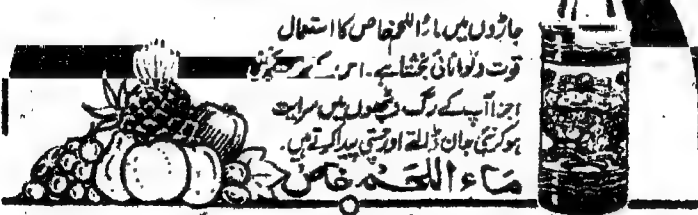 جاڑوں میں ماءاللحم خاص کا استعمال
قوت و توانائی بخشتا ہے۔ اس کے
اجزا آپ کے رگ و پٹھوں میں سرایت
ہو کر نئی جان ڈالتے اور چستی پیدا کرتے ہیں۔
ماء اللحم خاص